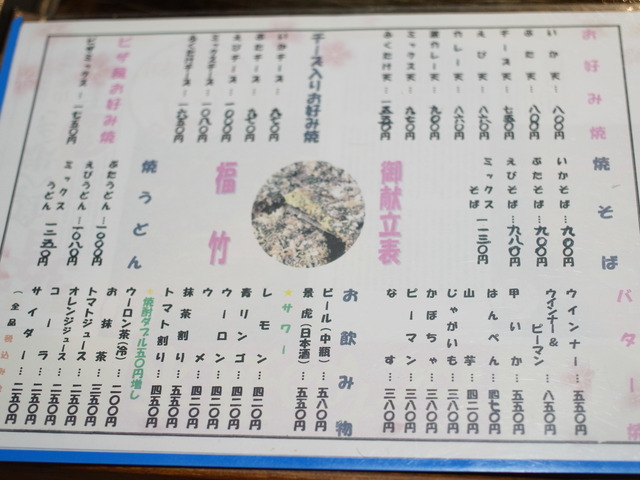 お好み焼
いか天…八〇〇円
ぶた天…八〇〇円
チーズ天…七五〇円
えび天…八六〇円
カレー天…八六〇円
ミックス天…九七〇円
ふくたけ天…一三五〇円
チーズ入りお好み焼
いかチーズ…九七〇円
ぶたチーズ…九七〇円
えびチーズ…一〇〇〇円
ミックスチーズ…一〇八〇円
ふくたけチーズ…一九五〇円
ピザ風お好み焼
ピザミックス…一七五〇円
焼そば
いかそば…九〇〇円
ぶたそば…九〇〇円
えびそば…九八〇円
ミックスそば…一一三〇円
御献立表
福竹
焼うどん
ぶたうどん…一〇〇〇円
えびうどん…一〇八〇円
ミックスうどん…一三五〇円
バター焼
ウインナー…五五〇円
ウインナー&ピーマン…八五〇円
甲いか…五五〇円
はんぺん…四七〇円
山芋…四二〇円
じゃがいも…三八〇円
かぼちゃ…三八〇円
ピーマン…三八〇円
なす…三八〇円
お飲み物
ビール(中瓶)…五八〇円
景虎(日本酒)…五五〇円
★サワー
レモン…四二〇円
青リンゴ…四二〇円
ウーロン…四二〇円
ウメ…四二〇円
抹茶割り…五五〇円
トマト割り…四五〇円
★焼酎ダブル五〇円増し
ウーロン茶(冷)…二〇〇円
お抹茶…三五〇円
トマトジュース…二五〇円
オレンジジュース…二五〇円
コーラ…二五〇円
サイダー…二五〇円
(全品税込み